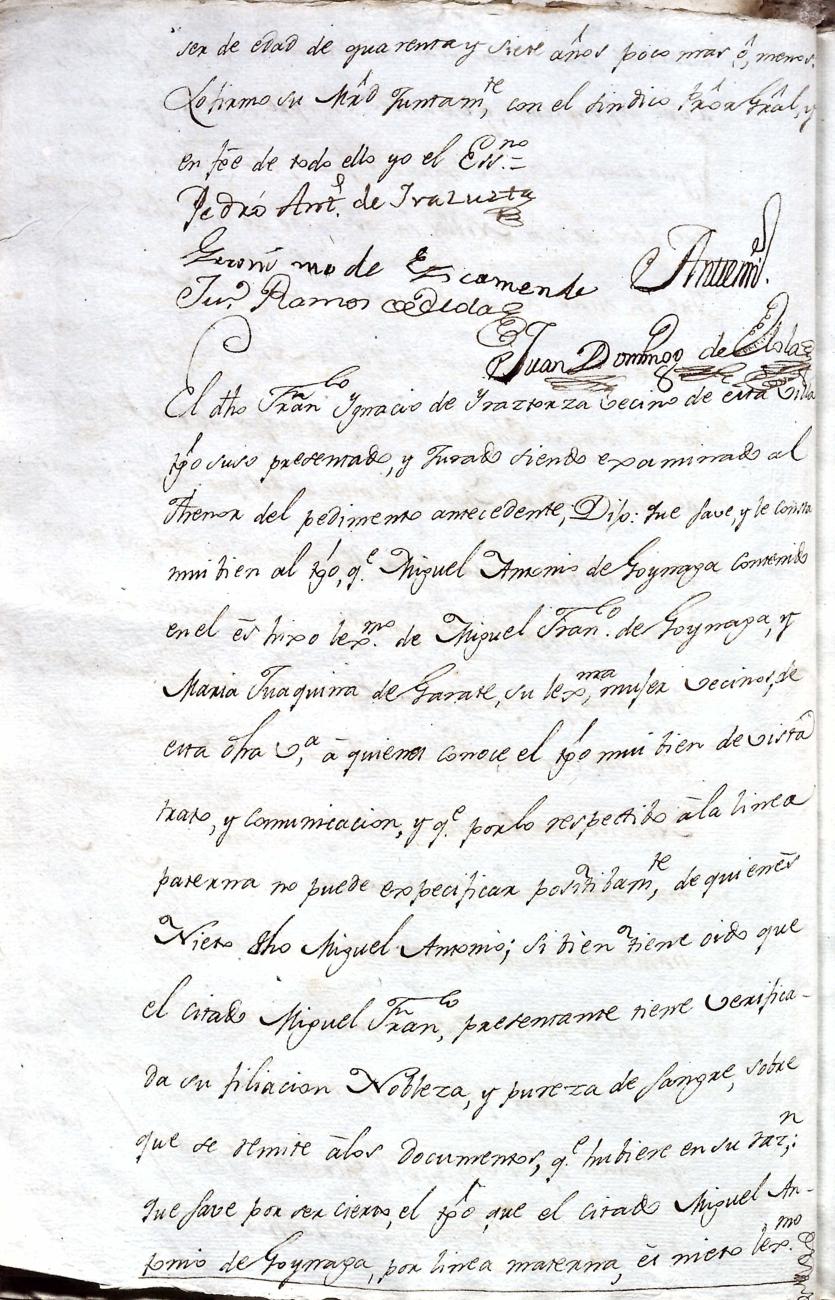 ser de edad de quarenta y siete años poco mas ô, menos.
Lo firmo su Mrd Juntamte, con el sindico Prôr Grâl, y
en fée de todo ello yo el Essno=
Pedro Antº de Irazusta
Geronimo de Escamendi Antemi.
Juº Ramos
Juan Domingo de Elola
El dho Franco Ygnacio de Yraztorza vecino de esta Villa
tgo suso presentado, y Jurado siendo examinado al
thenor del pedimento antecedente, Dijo: que save, y le consta
mui bien al tgo, qe Miguel Antonio de Goynaga contenido
en el és hixo lexmo. de Miguel Franco. de Goynaga, y
Maria Juaquina de Garate, su lexma, mujer vecinos, de
esta dha Va, â quienes conoce el tgo mui bien de vista
trato, y comunicacion, y qe por lo respectibo âla linea
paterna no puede expecificar positibamte, de quienês
Nieto dho Miguel Antonio; si bien tiene oido que
el citado Miguel Franco, presentante tiene verifica-
da su filiacion Nobleza, y pureza de sangre, sobre
que se remite âlos documentos, qe hubiere en su razn;
que save por ser cierto, el tgo que el citado Miguel An-
tonio de Goynaga, por linea materna, és nieto lexmo.